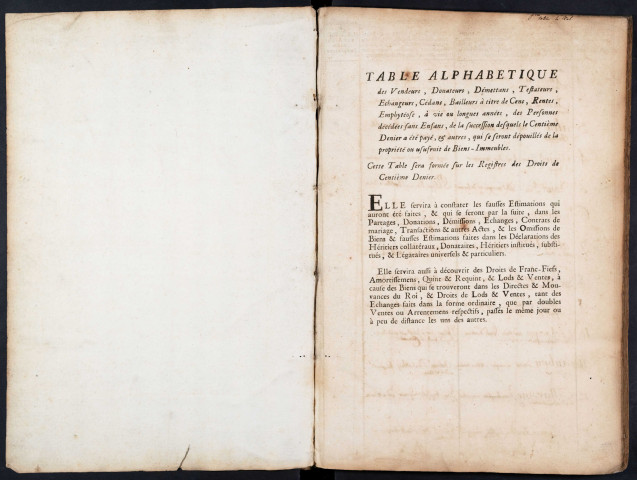 TABLE ALPHABETIQUE
des Vendeurs, Donateurs, Démettans, Testateurs,
Echangeurs, Cédans, Bailleurs à titre de Cens, Rentes,
Emphytéose, à vie ou longues années, des Personnes
décédées sans Enfans, de la succession desquels le Centième
Denier a été payé, & autres, qui se seront dépouillés de la
propriété ou usufruit de Biens-Immeubles.
Cette Table sera formée sur les Registres des Droits de
Centième Denier.
ELLE servira à constater les fausses Estimations qui
auront été faites, & qui se feront par la suite, dans les
Partages, Donations, Démissions, Echanges, Contrats de
mariage, Transactions & autres Actes, & les Omissions de
Biens & fausses Estimations faites dans les Déclarations des
Héritiers collatéraux, Donataires, Héritiers institués, substi-
tués, & Légataires universels & particuliers.
Elle servira aussi à découvrir des Droits de Franc-Fiefs,
Amortissemens, Quint & Requint, & Lods & Ventes, à
cause des Biens qui se trouveront dans les Directes & Mou-
vances du Roi, & Droits de Lods & Ventes, tant des
Echanges faits dans la forme ordinaire, que par doubles
Ventes ou Arrentemens respectifs, passés le même jour ou
à peu de distance les uns des autres.